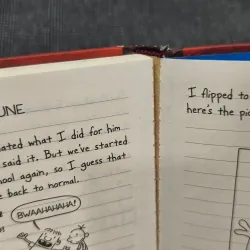 UNE
ated what I did for him
said it. But we've started
ool again, so I guess that
e back to normal.
BWAAHAHAHA!
I flipped to
here's the pic